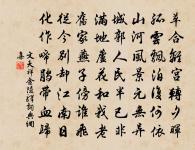 草合離宮轉夕暉
孤雲飄泊復何依
山河風景元無異
城郭人民半已非
滿地蘆花和我老
舊家燕子傍誰飛
從今別卻江南日
化作啼鵑帶血歸
文天祥金陵驛詞典網
集